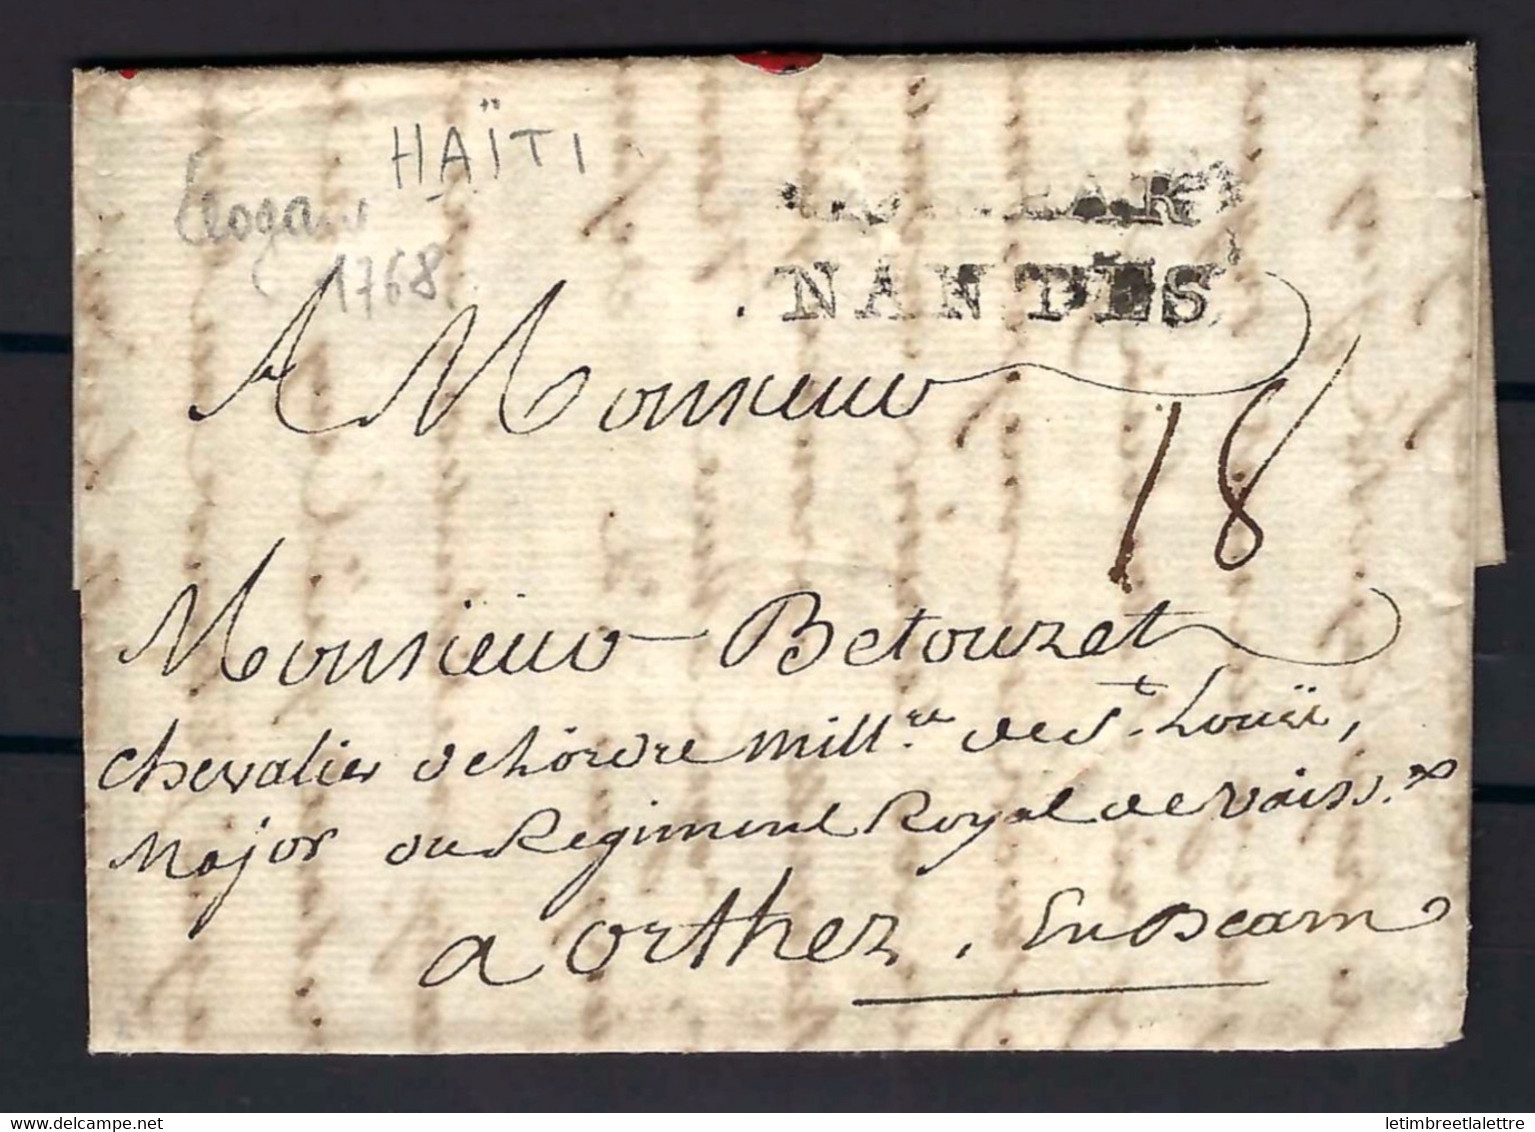 HAÏTI
Léogane
1768
NANTES
A Monsieur
18
Monsieur Betouzet
chevalier de l'ordre mill.re de St. Louïs,
Major du Regiment Royal de vaiss.x
a orthez, En Bearn
delcampe.net
letimbreetlalettre